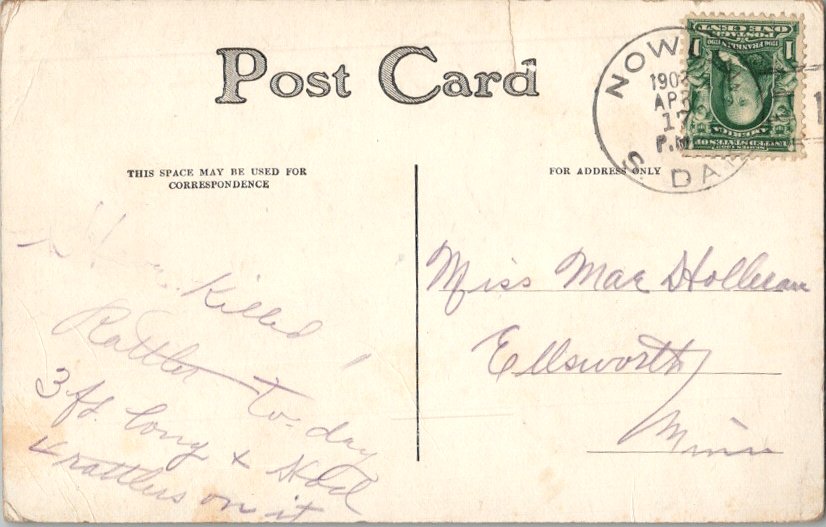 Post Card
THIS SPACE MAY BE USED FOR
CORRESPONDENCE
FOR ADDRESS ONLY
NOW
190
AP
17
P.M
S. DA
1 1
ONE CENT
POSTAGE
FRANKLIN
AMERICA
UNITED STATES OF
Miss Mae Holleran
Ellsworth
Minn
Killed 1
Rattler to-day
3 ft. long & Had
4 rattlers on it